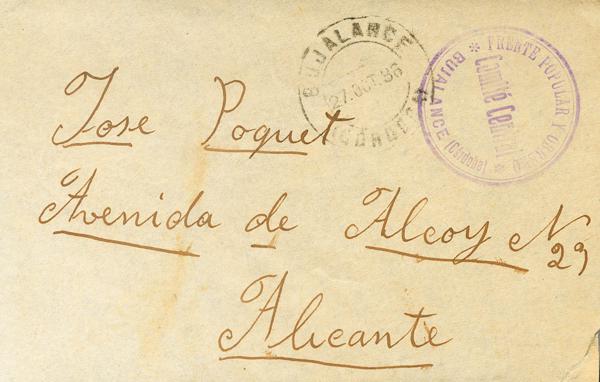 BUJALANCE
27.OCT.36
(CORDOBA)
FRENTE POPULAR Y OBRERO
Comité Central
BUJALANCE (Córdoba)
Jose Poquet
Avenida de Alcoy N
29
Alicante